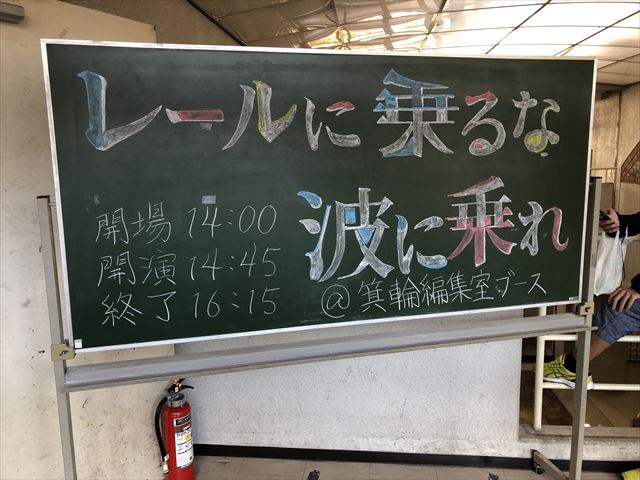 レールに乗るな
波に乗れ
開場 14:00
開演 14:45
終了 16:15
@箕輪編集室ブース